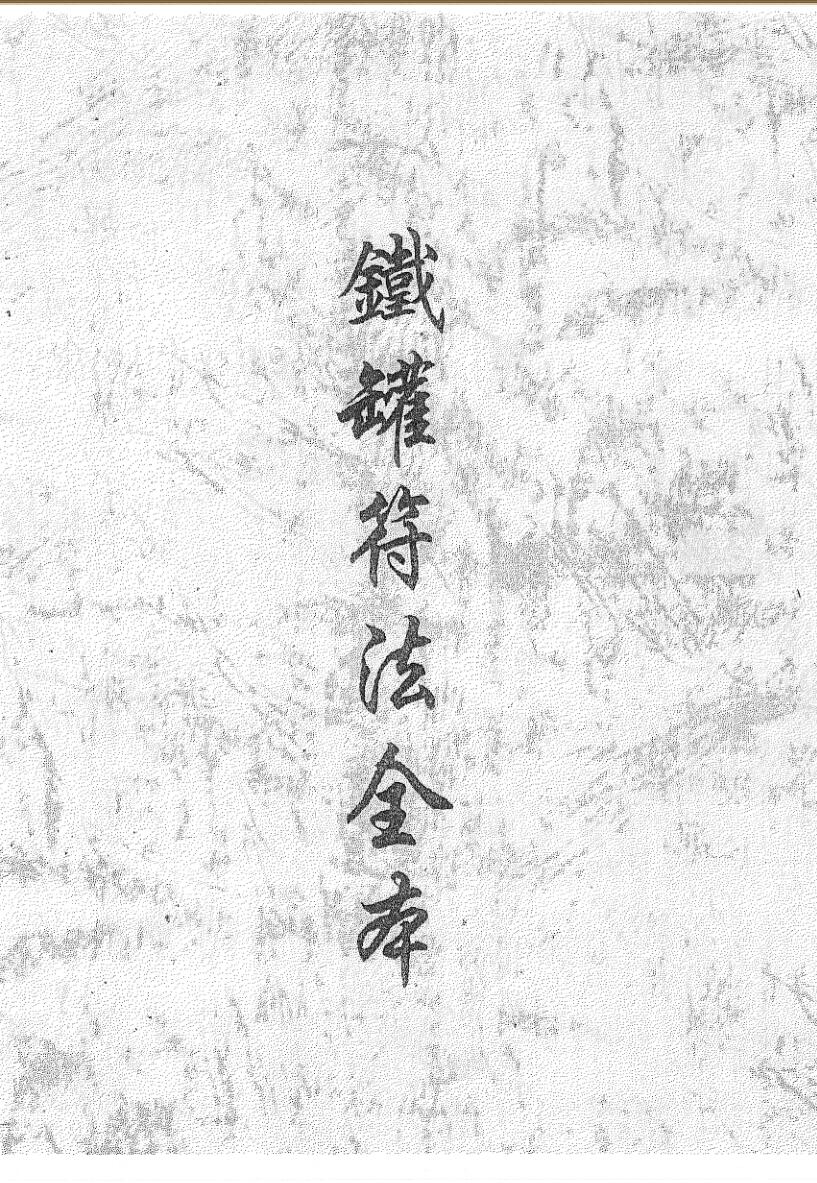 鐵罐符法全本